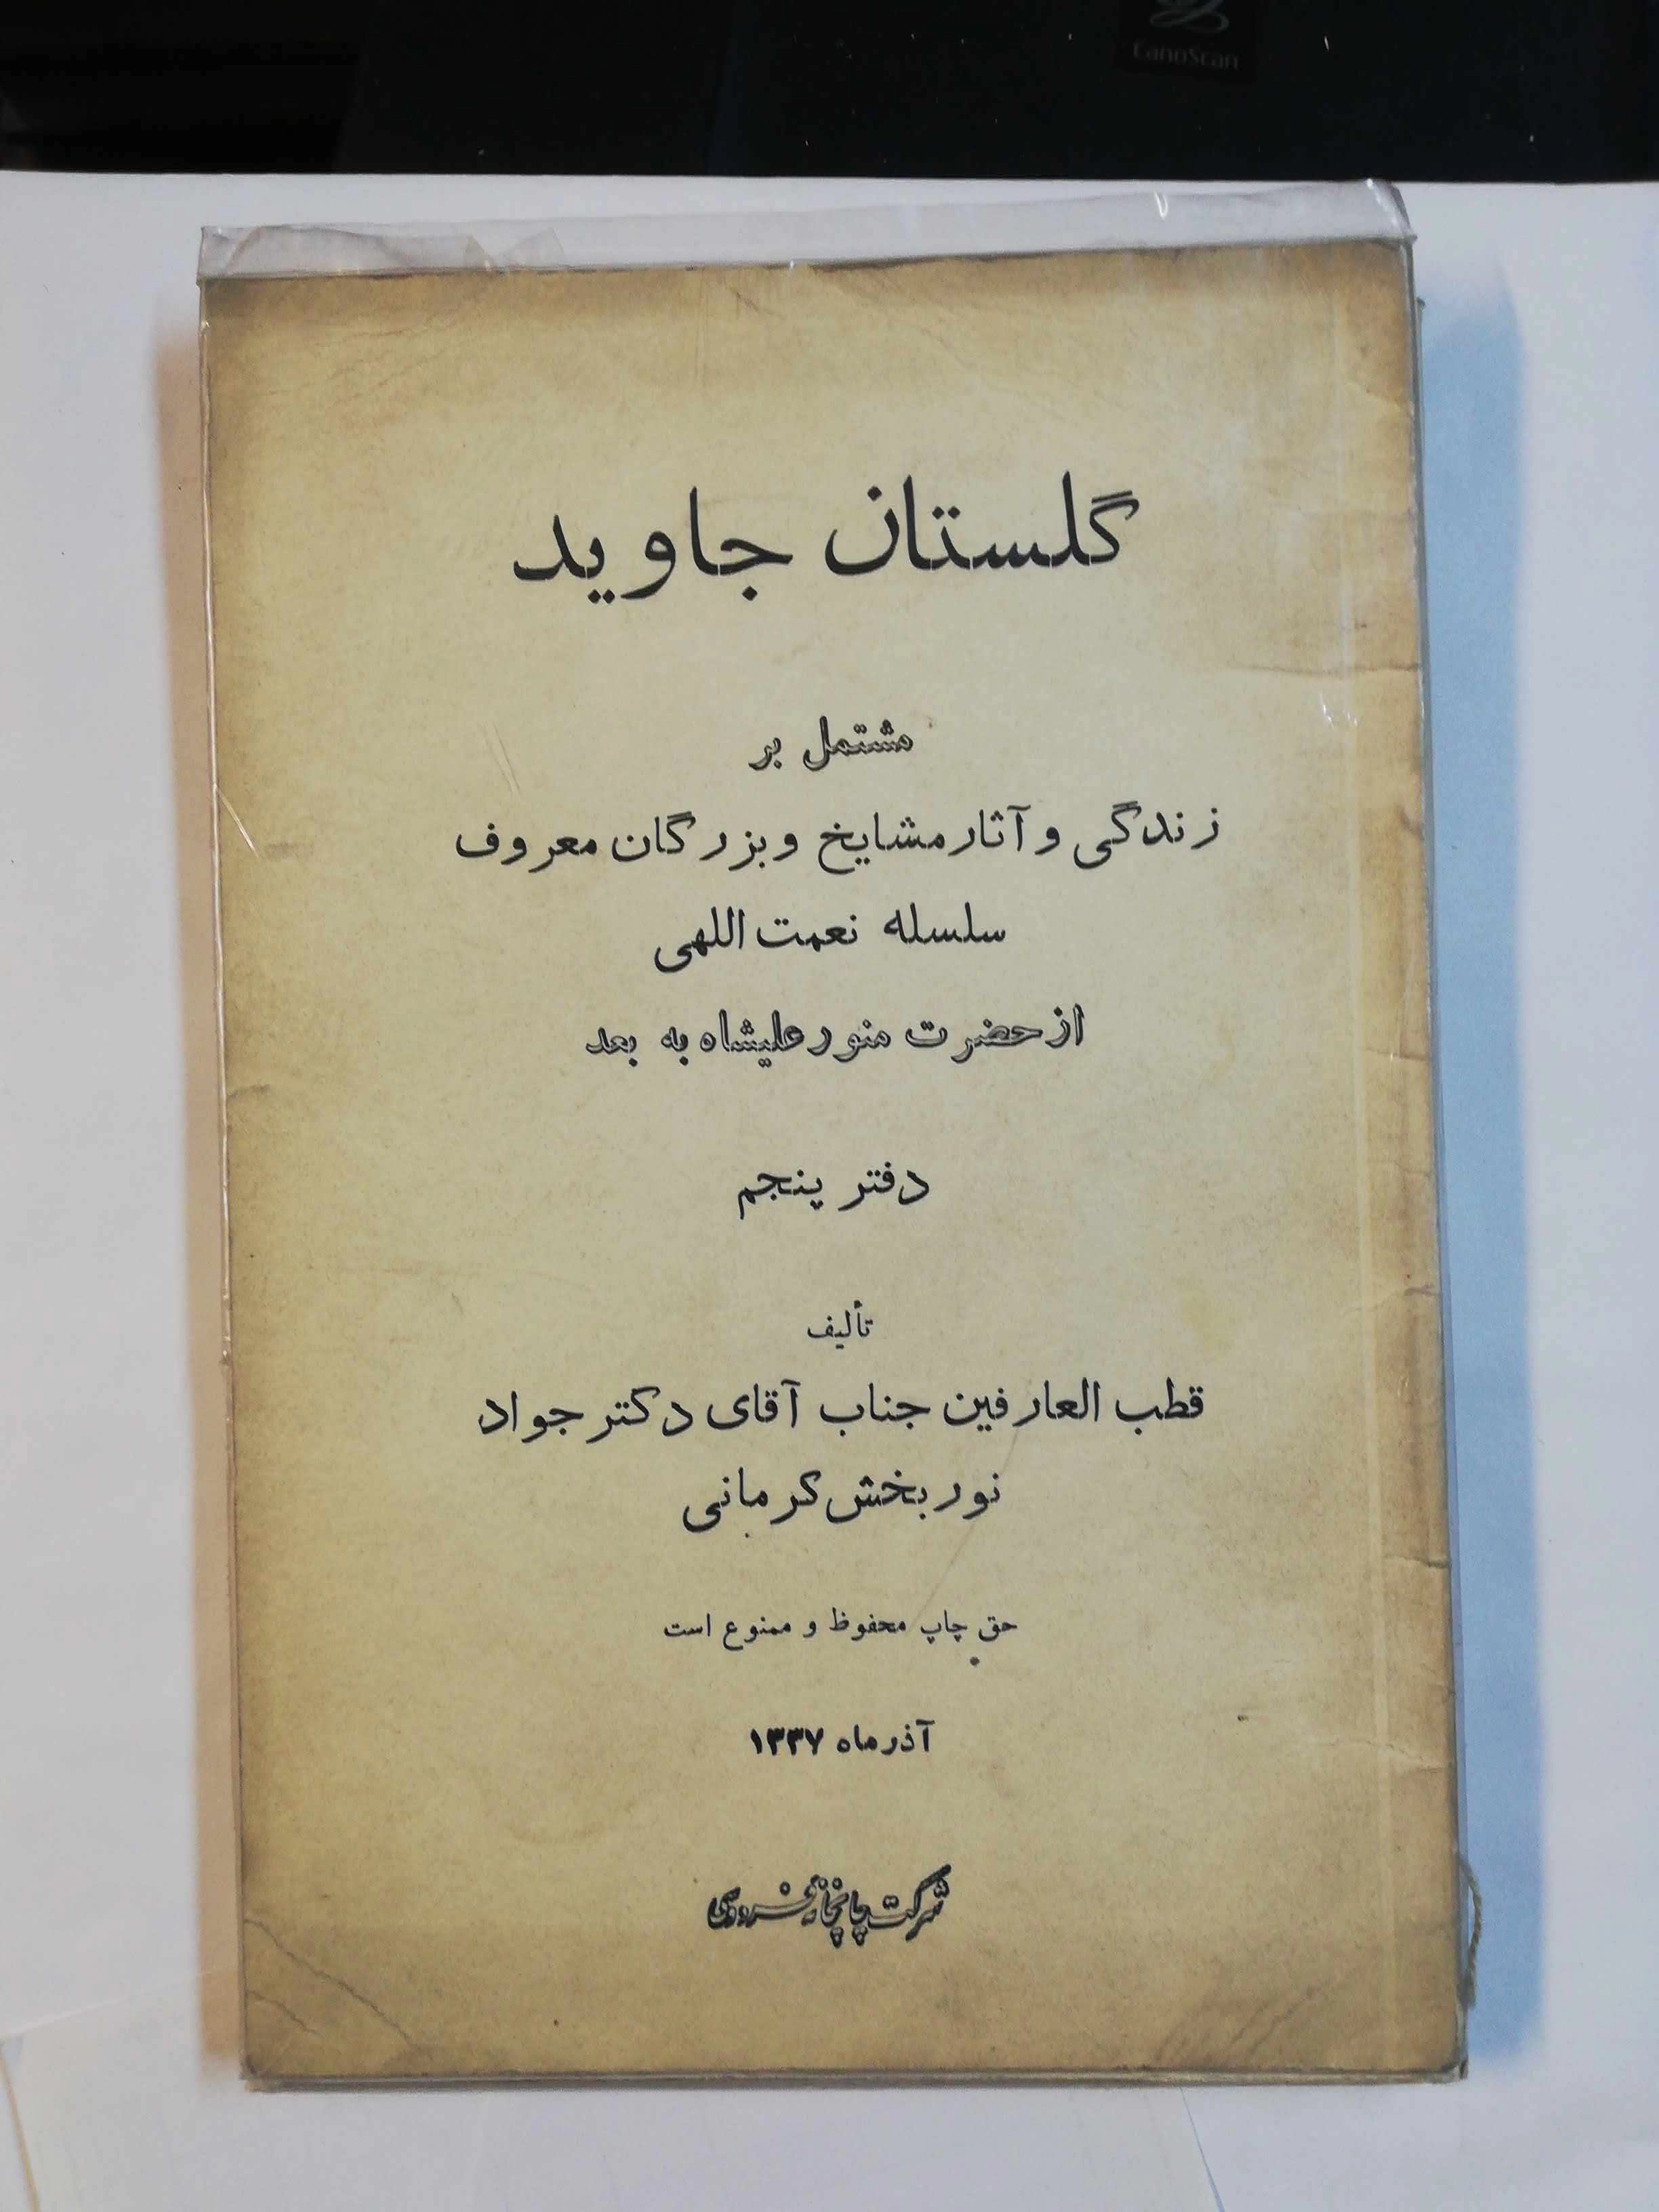 CanoScan
گلستان جاوید
مشتمل بر
زندگی و آثار مشایخ و بزرگان معروف
سلسله نعمت اللهی
از حضرت منور علیشاه به بعد
دفتر پنجم
تألیف
قطب العارفین جناب آقای دکتر جواد
نوربخش کرمانی
حق چاپ محفوظ و ممنوع است
آذر ماه ۱۳۳۷
شرکت چاپخانه فردوسی